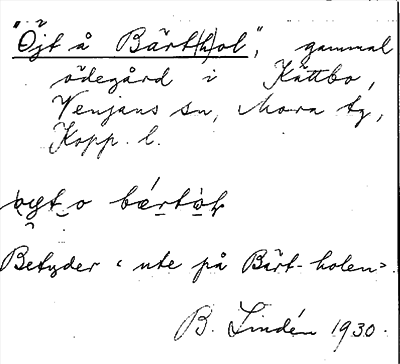 "Öjt å Bärt(h)ol", gammal
ödegård i Kättbo,
Venjans sn, Mora tg,
Kopp. l.
Betyder "ute på Bärt-holen".
B. Lindén 1930.